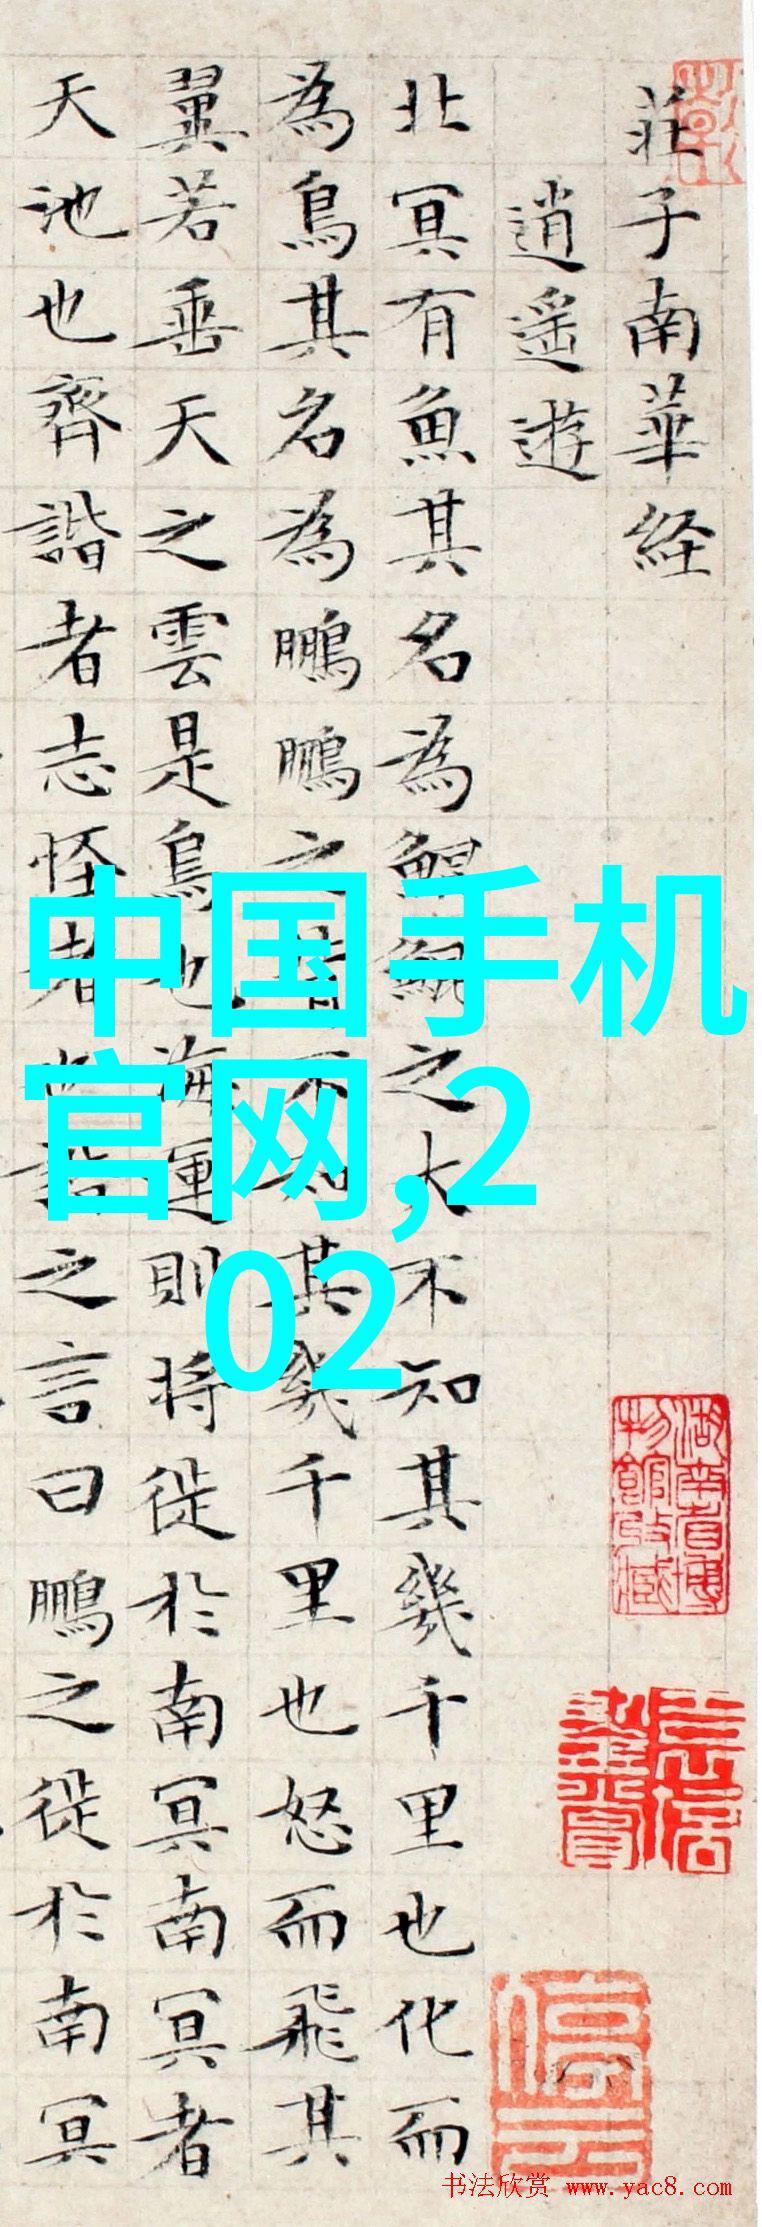 莊子南華経
逍遥遊
北冥有魚其名為鯤鯤之大不知其幾千里也化而
為鳥其名為鵬鵬之背不知其幾千里也怒而飛其
翼若垂天之雲是鳥也海運則将徙於南冥南冥者
天池也齊諧者志怪者也諧之言曰鵬之徙於南冥
中国手机
官网,2
02
湖南省博
物館收藏
书法欣赏 www.yac8.com